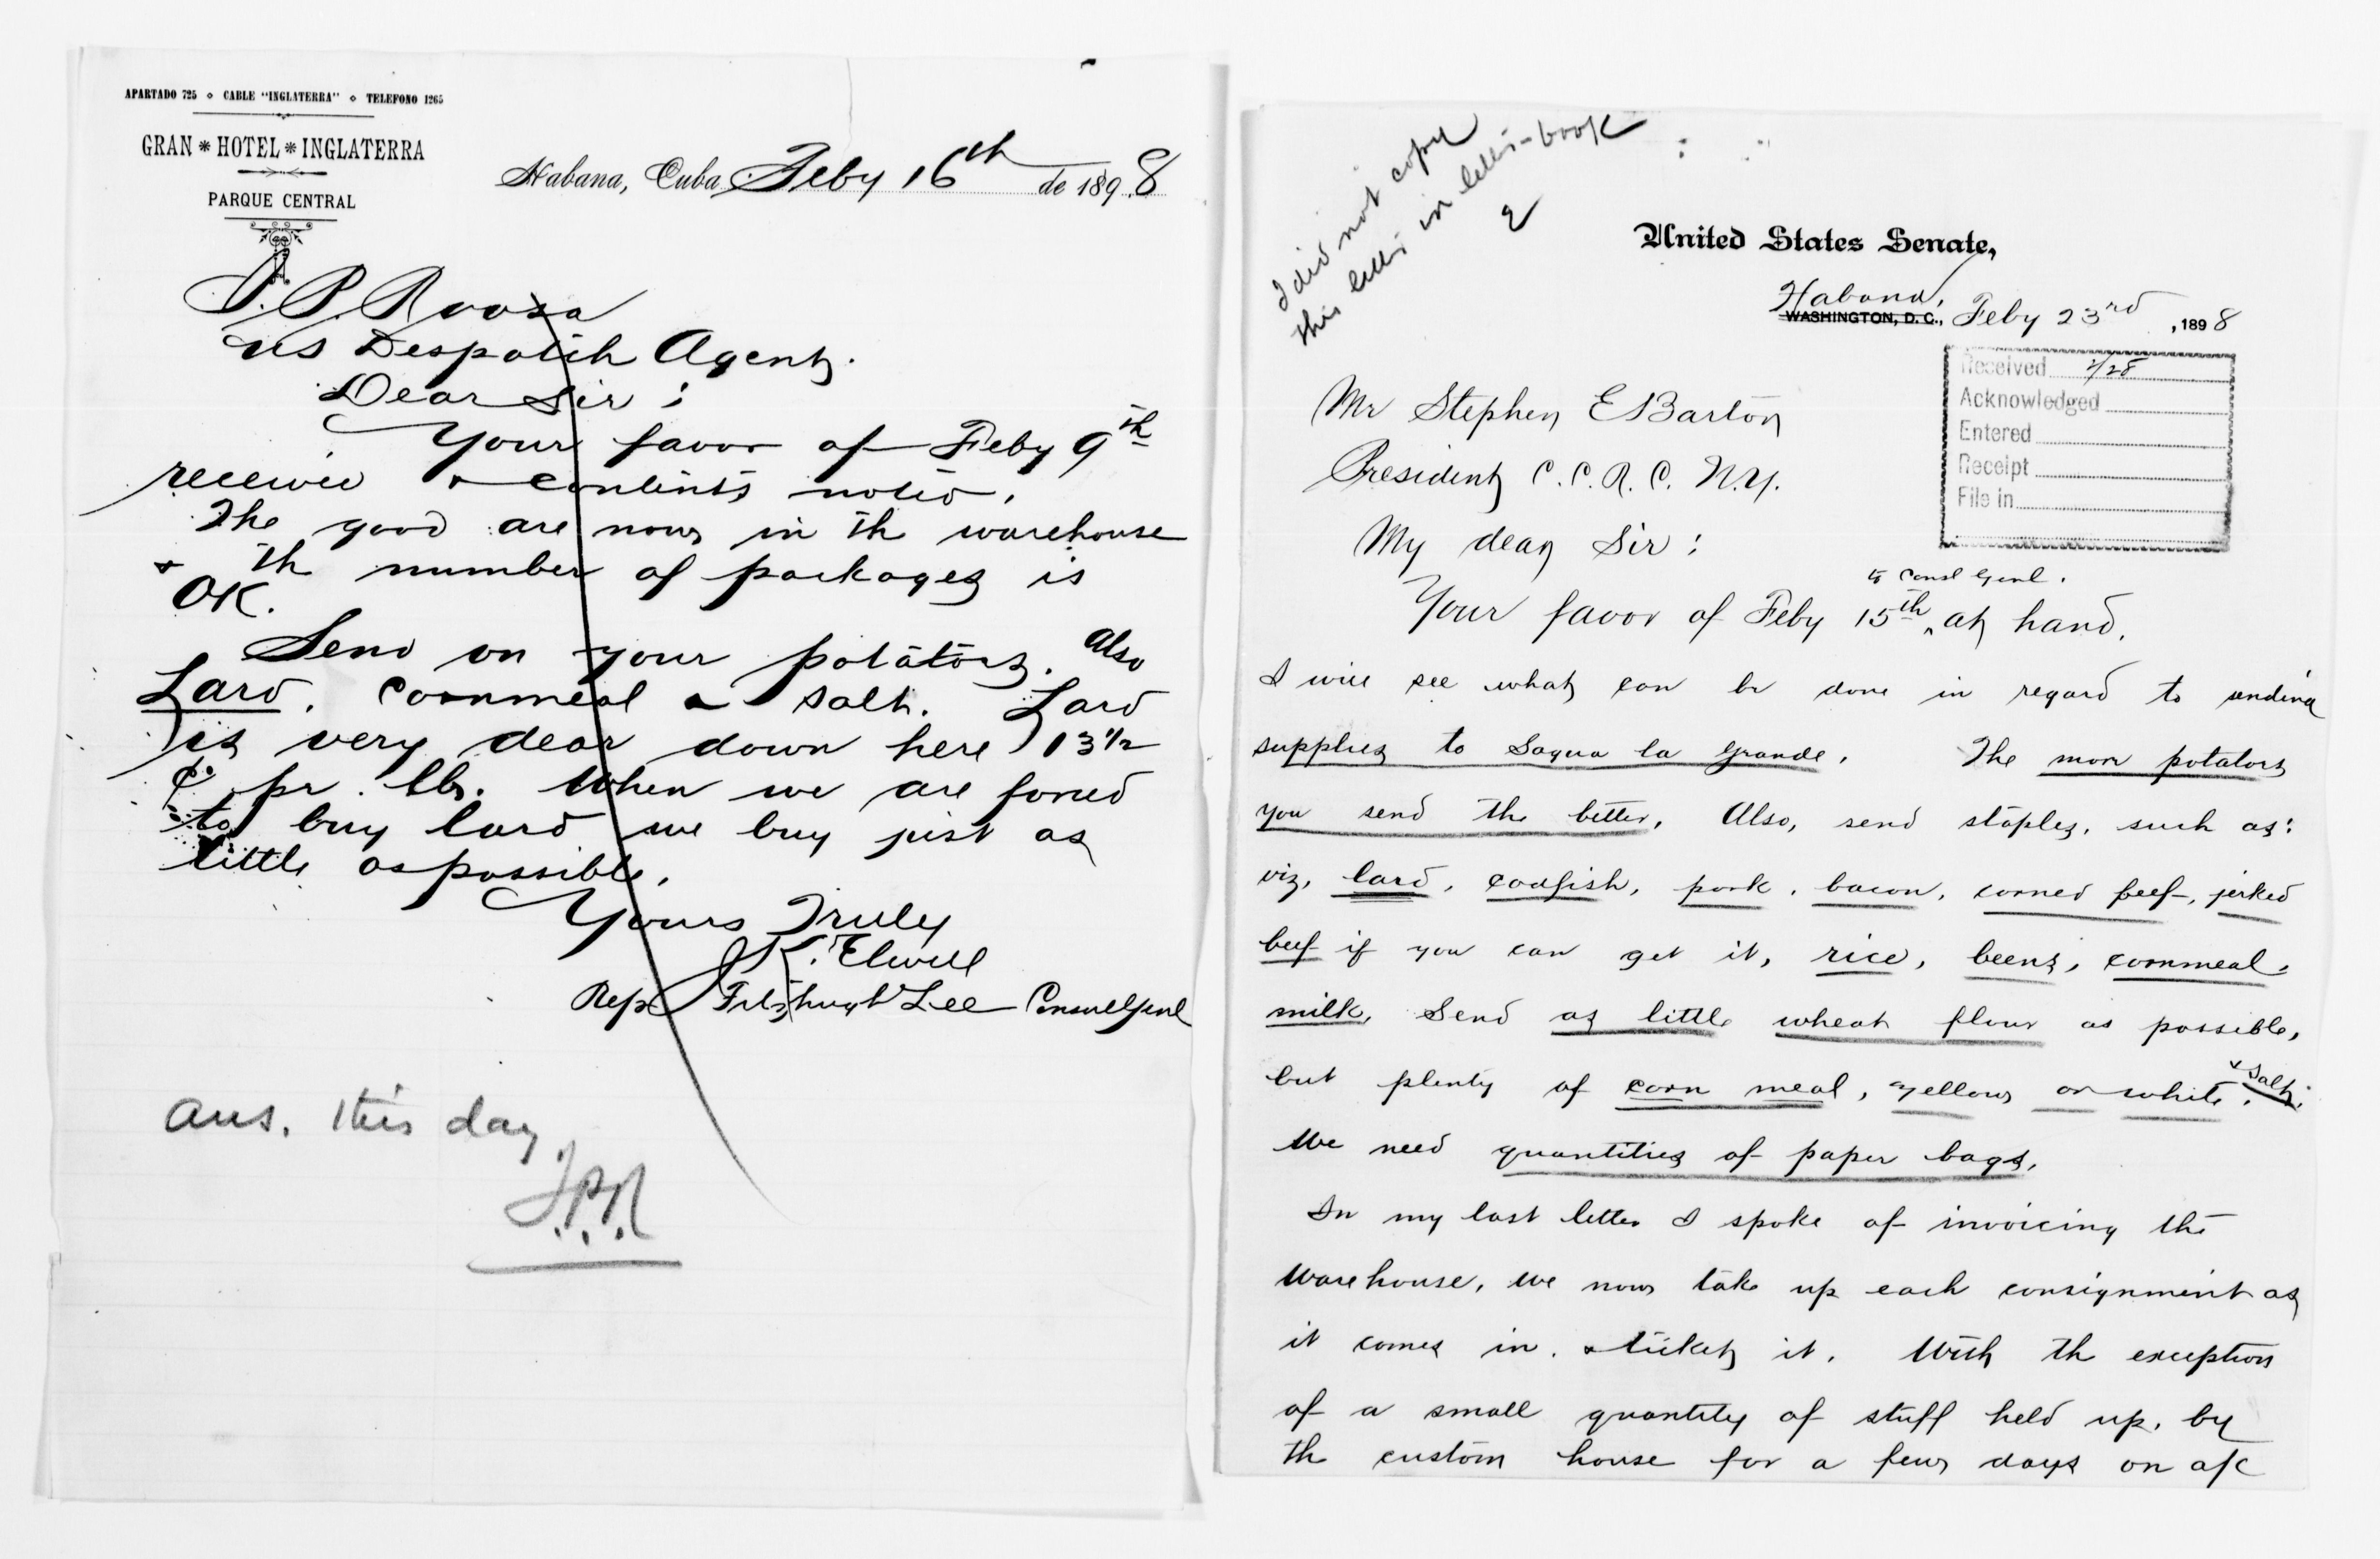 APARTADO 725 ⋄ CABLE "INGLATERRA" ⋄ TELEFONO 1265
GRAN * HOTEL * INGLATERRA
PARQUE CENTRAL
Habana, Cuba Feby 16th de 1898
J. P. Roosa
US Despatch Agent.
Dear Sir:
Your favor of Feby 9th
received & contents noted.
The good are now in th warehouse
& th number of packages is
OK.
Send on your potatoes. Also
Lard. Cornmeal & salt. Lard
is very dear down here 13 1/2
¢ pr. lb. When we are forced
to buy lard we buy just as
little as possible.
Yours Truly
J K. Elwell
Rep Fitzhugh Lee Consul Genl
Ans. this day
J.P.R.
I did not copy
this letter in letter-book
E
United States Senate,
Habana,
WASHINGTON, D. C., Feby 23rd, 1898
Received 2/28
Acknowledged
Entered
Receipt
File in
Mr Stephen E Barton
President C. C. R. C. N.Y.
My dear Sir:
to Consl Genl.
Your favor of Feby 15th ‸ at hand.
I will see what can be done in regard to sending
supplies to Sagua la Grande. The more potatoes
you send the better. Also, send staples, such as:
viz, lard, codfish, pork, bacon, corned beef, jerked
beef if you can get it, rice, beens, cornmeal.
milk. Send as little wheat flour as possible,
but plenty of corn meal, yellow or white. & Salt.
We need quantities of paper bags.
In my last letter I spoke of invoicing the
Warehouse. We now take up each consignment as
it comes in. & ticket it. With th exception
of a small quantity of stuff held up, by
th custom house for a few days on a/c